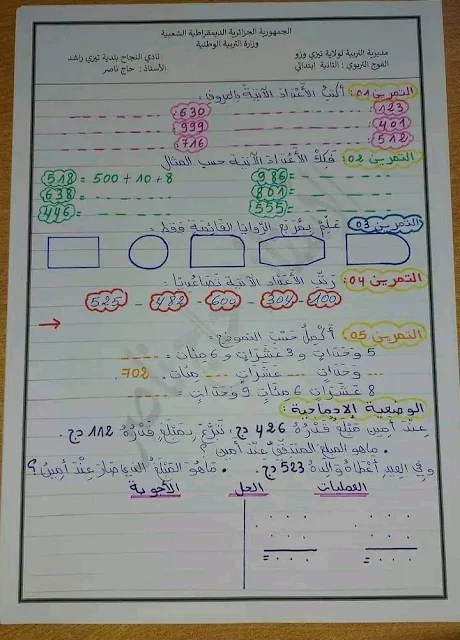 الجمهورية الجزائرية الديمقراطية الشعبية
وزارة التربية الوطنية
مديرية التربية لولاية تيزي وزو
نادي النجاح بلدية تيزي راشد
الفوج التربوي : الثانية ابتدائي
الأستاذ : حاج ناصر
التمرين 01: أكتبُ الأعْدادَ الآتيةَ بالحروف:
123: 630:
401: 999:
512: 716:
التمرين 02: فَكِّكْ الأعْدادَ الآتية حسب المثال
986 = 518 = 500 + 10 + 8
801 = 638 =
555 = 446 =
التمرين 03: عَلِّمْ بِمُرَبَّعٍ الزوايا القائمة فقط:
التمرين 04: رَتِّبْ الأعْدَادَ الآتية تَصَاعُدِيّا:
525 - 482 - 600 - 304 - 100
التمرين 05: أكْمِلْ حَسَبَ النموذج:
5 وحَدَاتٍ و 3 عَشَرَاتٍ و 6 مِئَات =
وحَدَات عَشَرَاتٍ مئات 702.
8 عَشَرَاتٍ 6 مئَاتٍ 9 وحَدَاتٍ =
الوضعية الإدماجية:
عِنْدَ أمين مَبْلَغٌ قَدْرُهُ 426 دج، تَبَرَّعَ بِمَبْلَغٍ قَدْرُهُ 112 دج.
• ماهو المبلغ المتبقّي عنْدَ أمين ؟
وفي العيدِ أعْطَاهُ والدهُ 523 دج. • ماهُوَ المَبْلَغُ الذي صَارَ عِنْدَ أمين؟
العمليات الحل الأجوبة